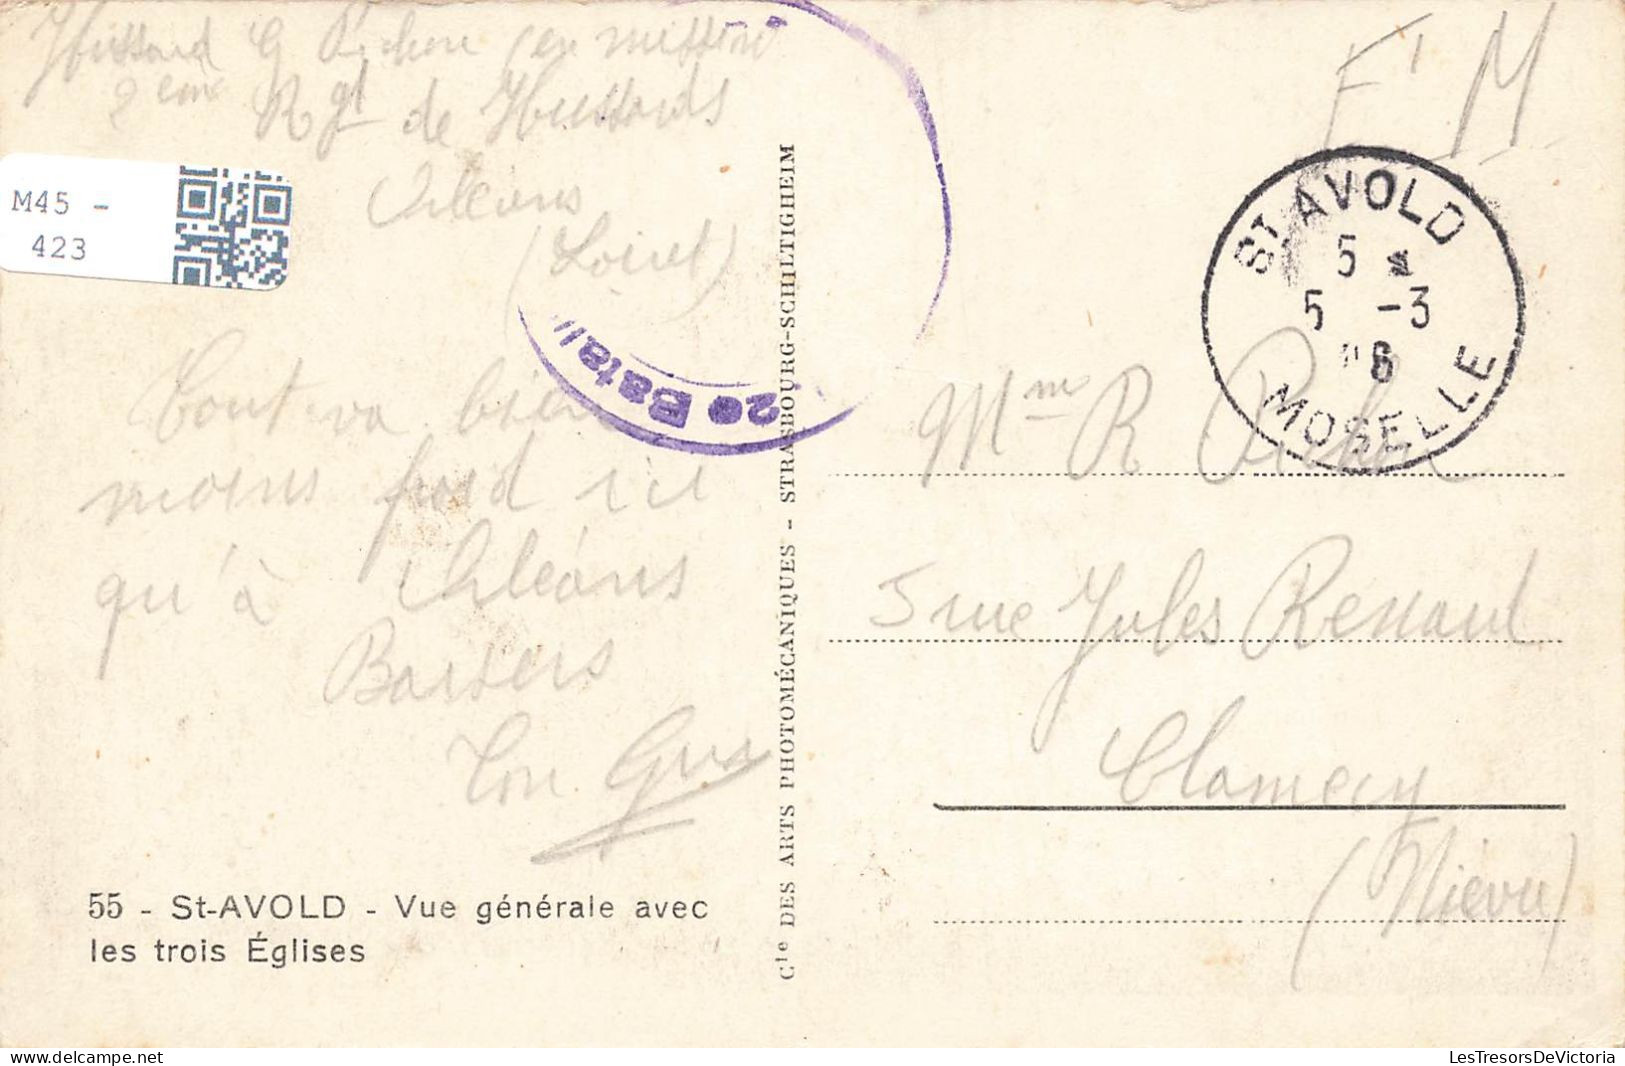 Hussard G Richen (en mission
2eme Rgt de Hussards
Orléans
(Loiret)
M45 -
423
2e Batai
Tout va bien
moins froid ici
qu'à Orléans
Baisers
Ton Gus
55 - St-AVOLD - Vue générale avec
les trois Églises
Cie DES ARTS PHOTOMÉCANIQUES - STRASBOURG-SCHILTIGHEIM
F M
ST AVOLD
5 *
5 -3
6
MOSELLE
Mme R
5 rue Jules Renard
Clamecy
(Nièvre)
LesTresorsDeVictoria